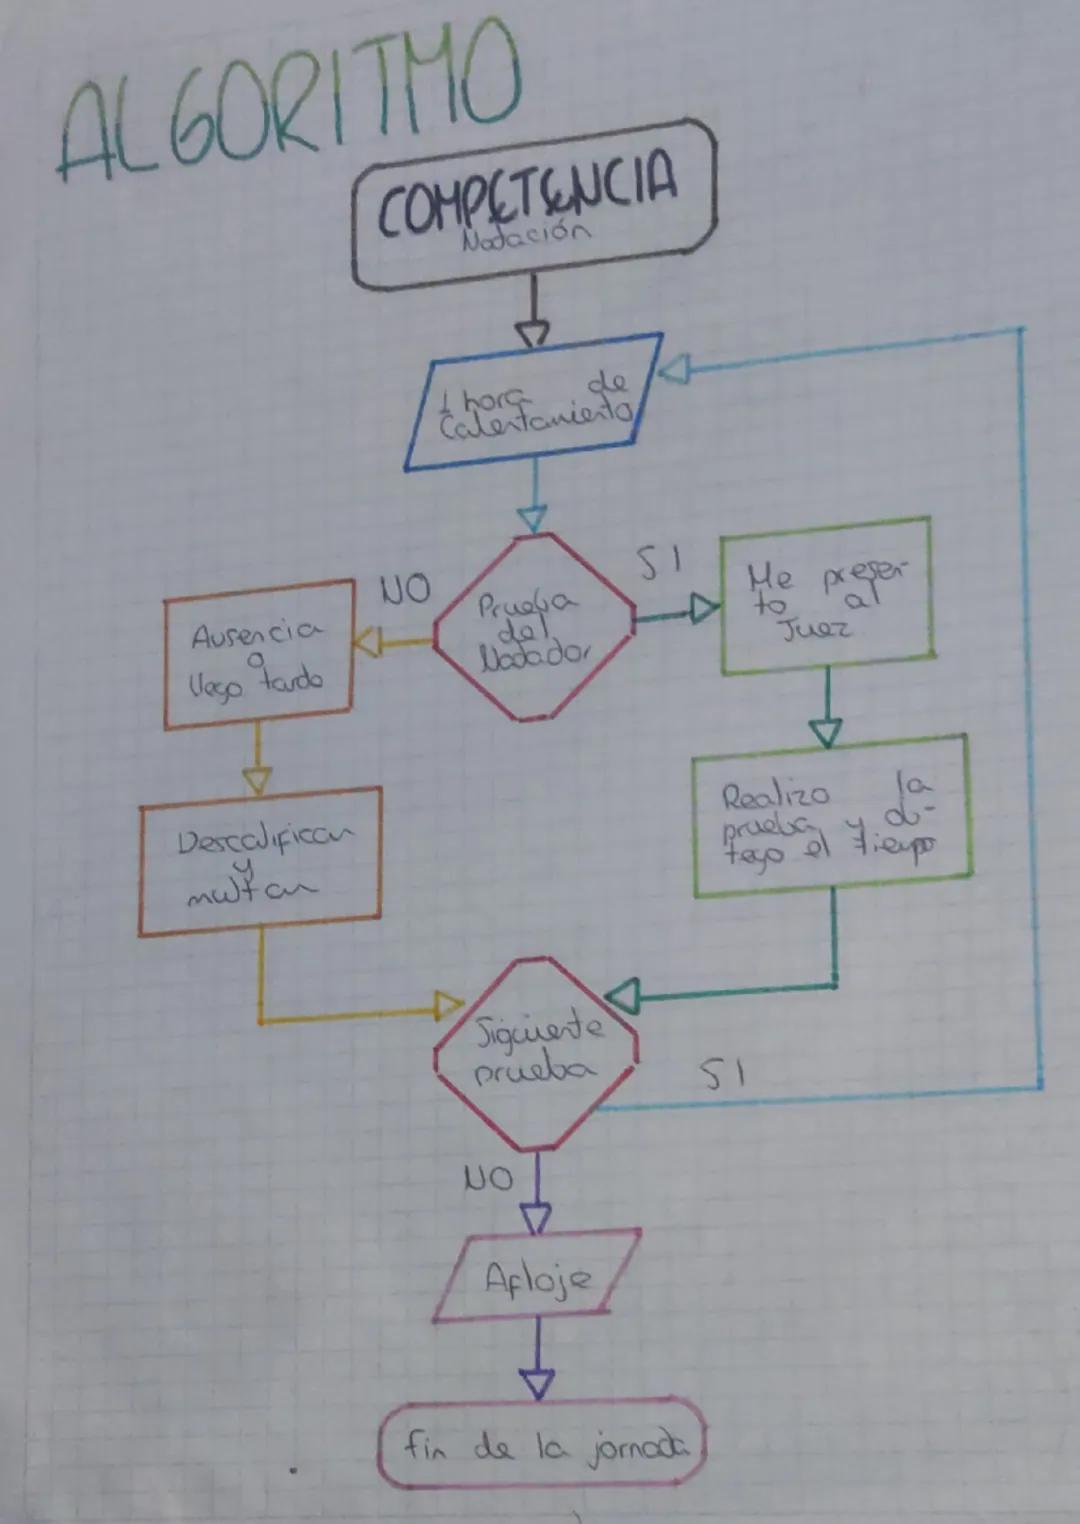 ALGORITMO
COMPETENCIA
Natación
1 hora de
Calentamiento
NO
SI
Prueba
del
Nadador
Me presen-
to al
Juez
Ausencia
o
llego tarde
Realizo la
prueba y ob-
tego el tiempo
Descalifican
y
multan
Siguiente
prueba
SI
NO
Afloje
fin de la jornada